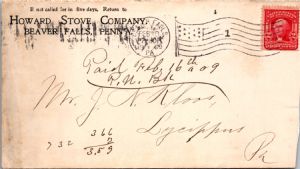 If not called for in five days, Return to
HOWARD STOVE COMPANY,
BEAVER FALLS, PENN'A.
1
Paid Feb 16th 09
Mr. J. N. Kloos,
Lycippus
Pa
366
732
359